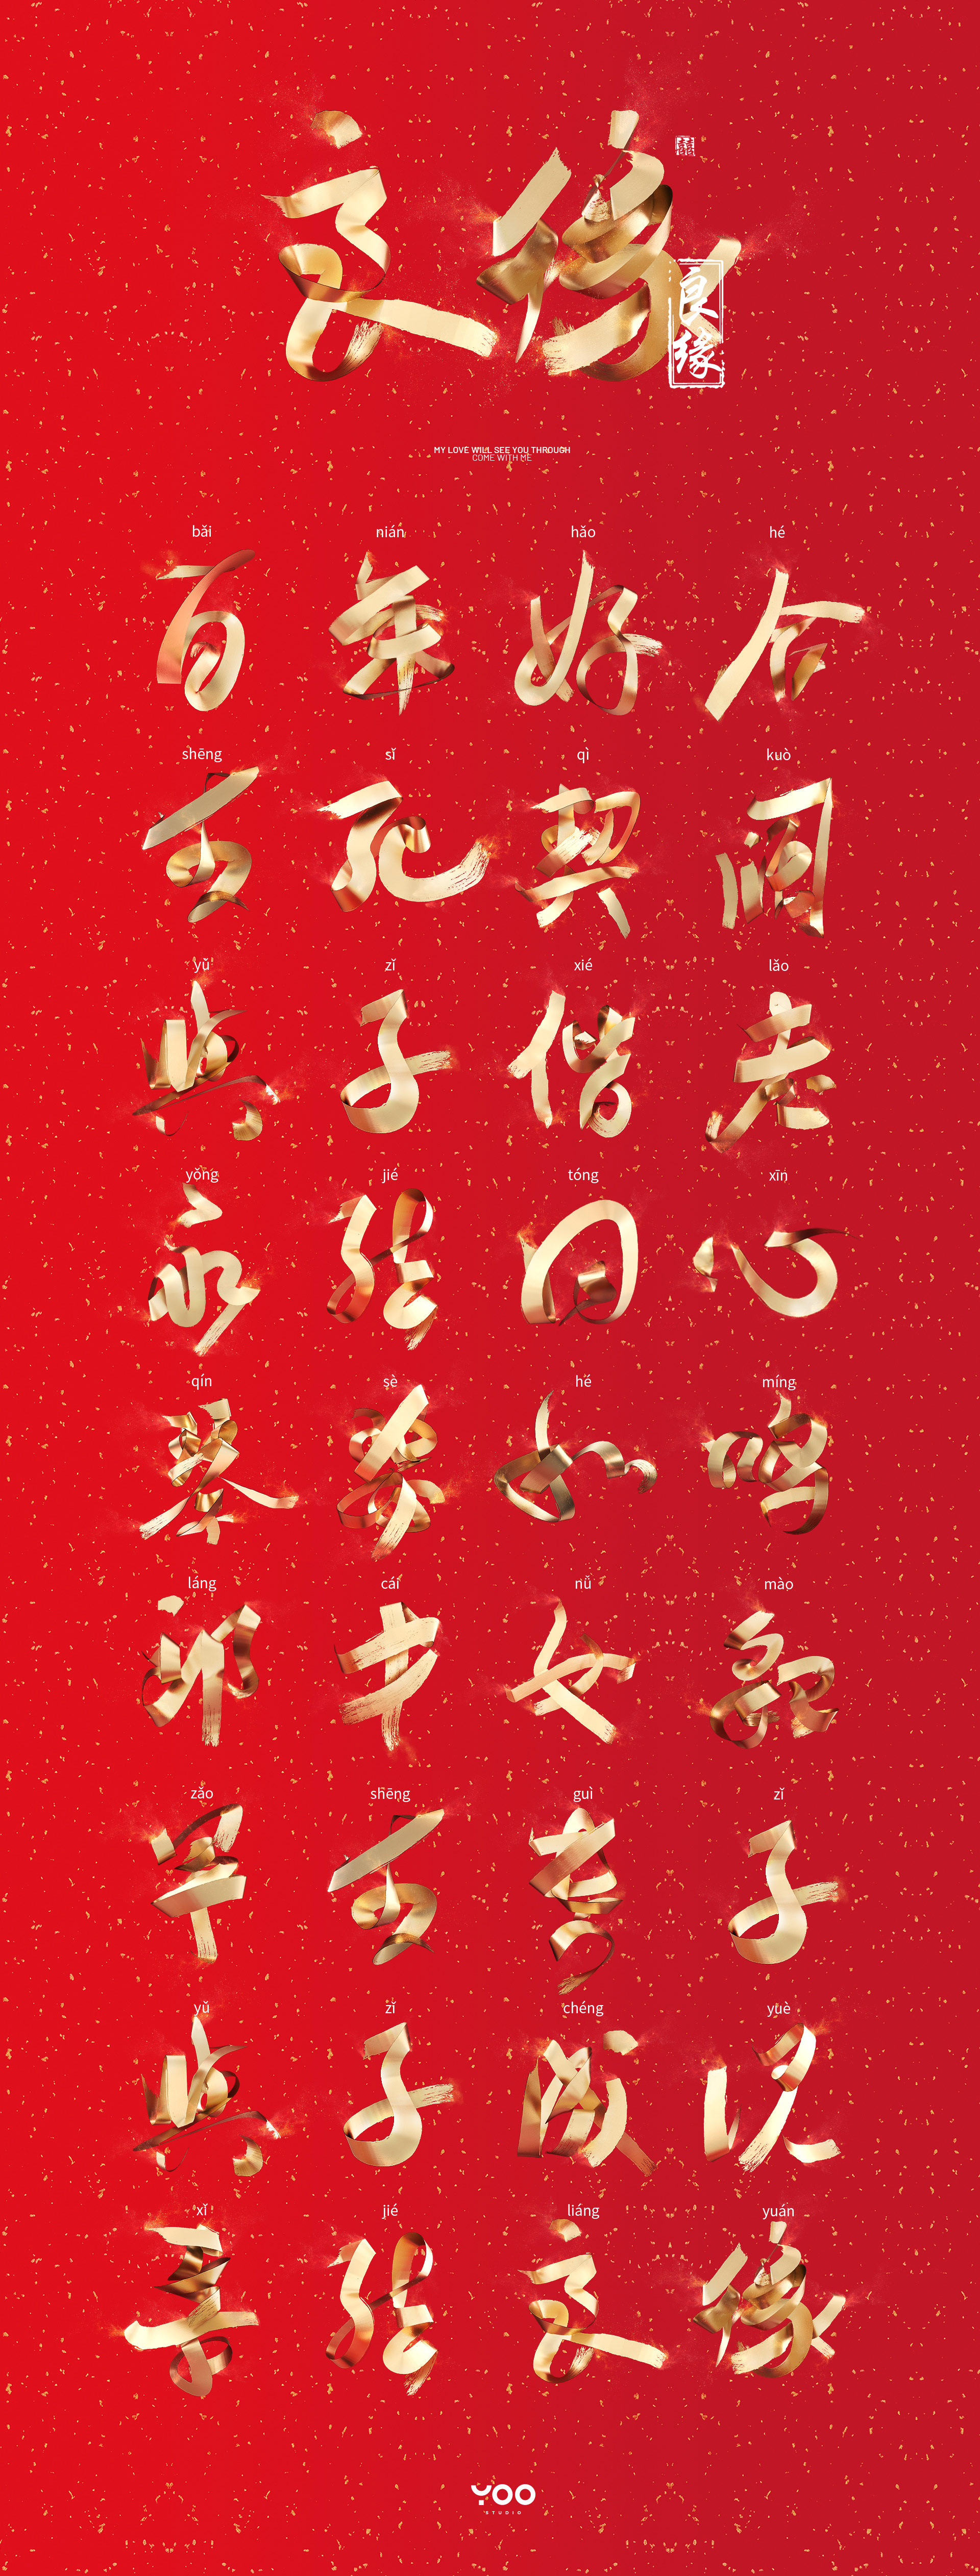 良缘
囍
良缘
MY LOVE WILL SEE YOU THROUGH
COME WITH ME
bǎi nián hǎo hé
百年好合
shēng sǐ qì kuò
生死契阔
yǔ zǐ xié lǎo
与子偕老
yǒng jié tóng xīn
永结同心
qín sè hé míng
琴瑟和鸣
láng cái nǚ mào
郎才女貌
zǎo shēng guì zǐ
早生贵子
yǔ zǐ chéng yuè
与子成说
xǐ jié liáng yuán
喜结良缘
YOO
STUDIO